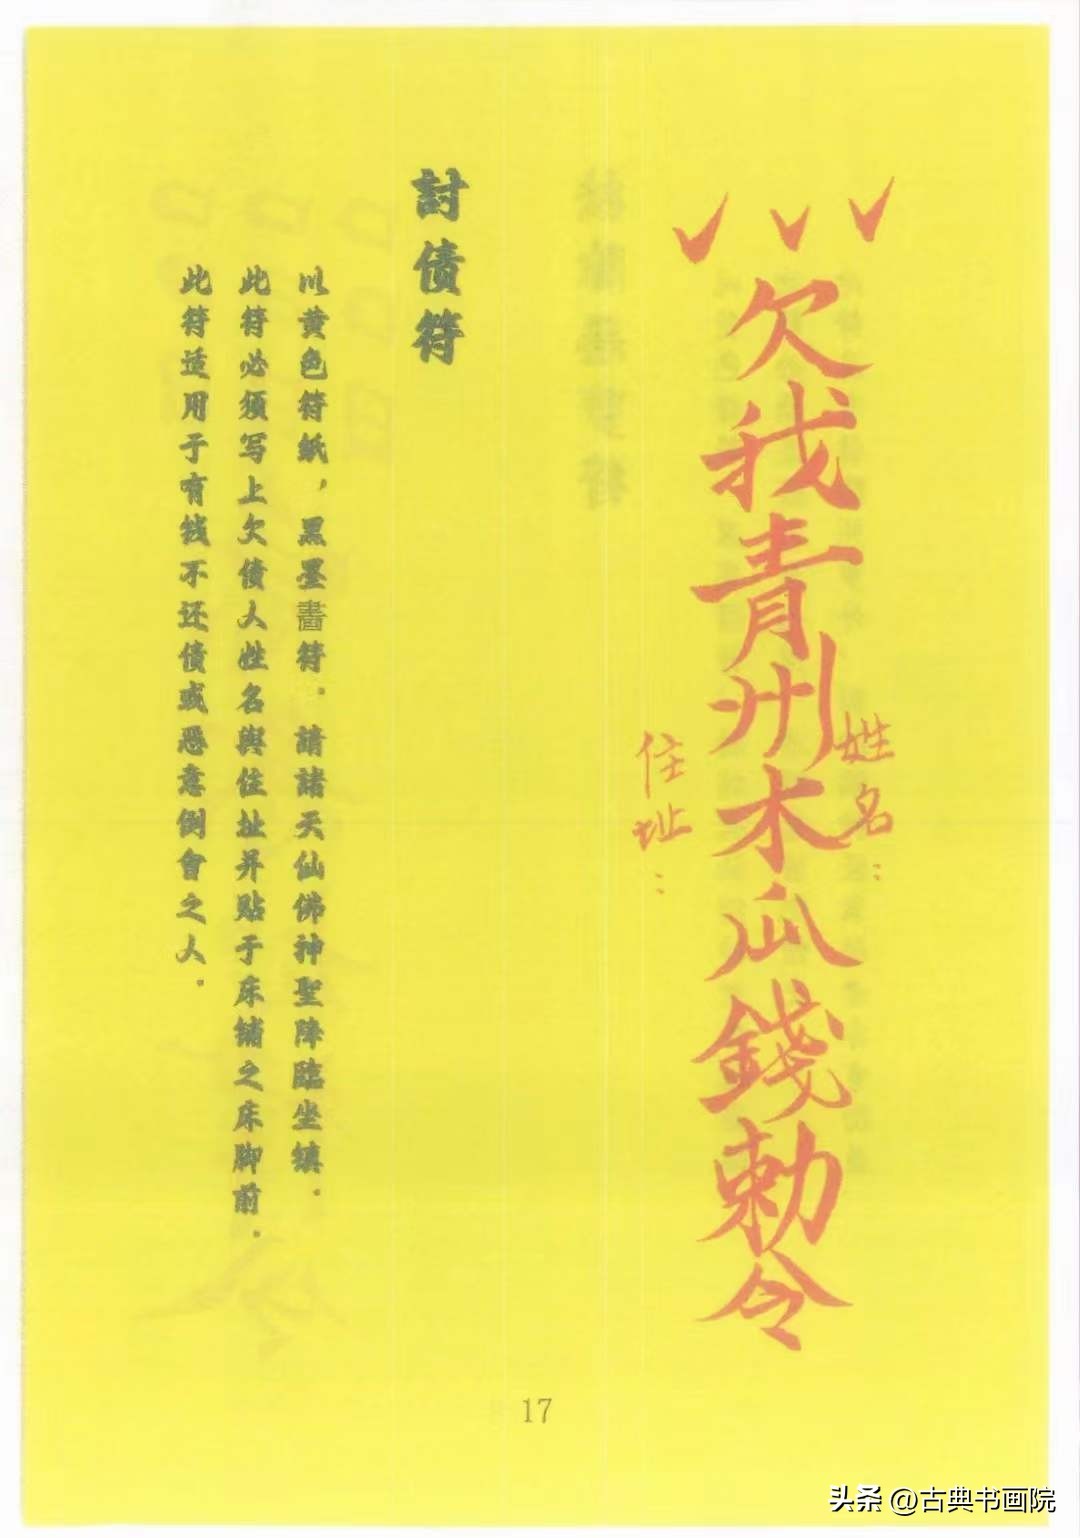 欠我青州木瓜錢勅令
姓名：
住址：
討债符
以黄色符紙，黑墨畫符．請諸天仙佛神聖降臨坐镇．
此符必须写上欠债人姓名與住扯并贴于床铺之床脚前．
此符适用于有钱不还债或恶意倒會之人．
17
头条 @古典书画院